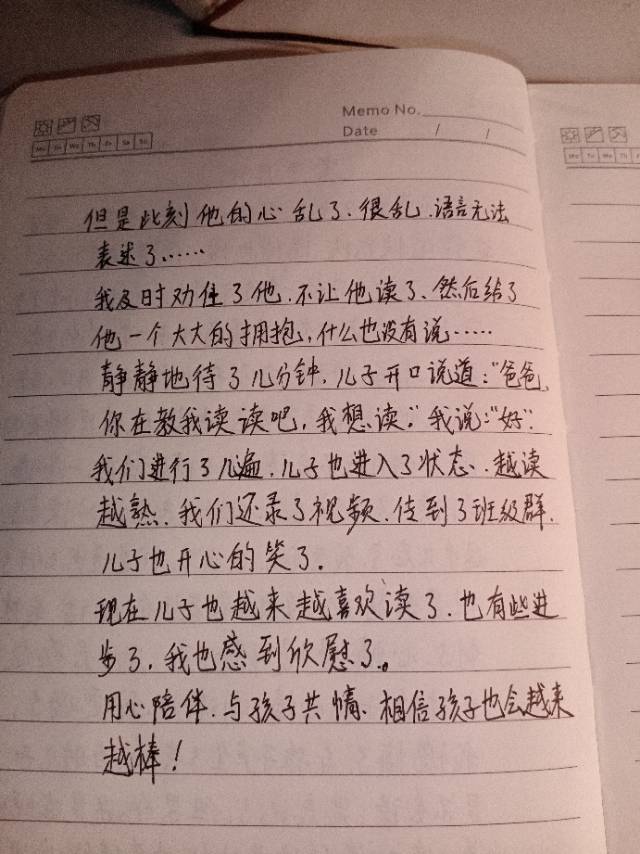 Memo No.
Date / /
Mo Tu We Th Fr Sa Su
Mo Tu We Th F
但是此刻他的心乱了、很乱、语言无法
表述了……
我及时劝住了他、不让他读了、然后给了
他一个大大的拥抱，什么也没有说……
静静地待了几分钟，儿子开口说道：“爸爸，
你在教我读读吧，我想读。”我说：“好”.
我们进行了几遍、儿子也进入了状态、越读
越熟、我们还录了视频、传到了班级群.
儿子也开心的笑了.
现在儿子也越来越喜欢读了、也有些进
步了，我也感到欣慰了。
用心陪伴、与孩子共情、相信孩子也会越来
越棒！